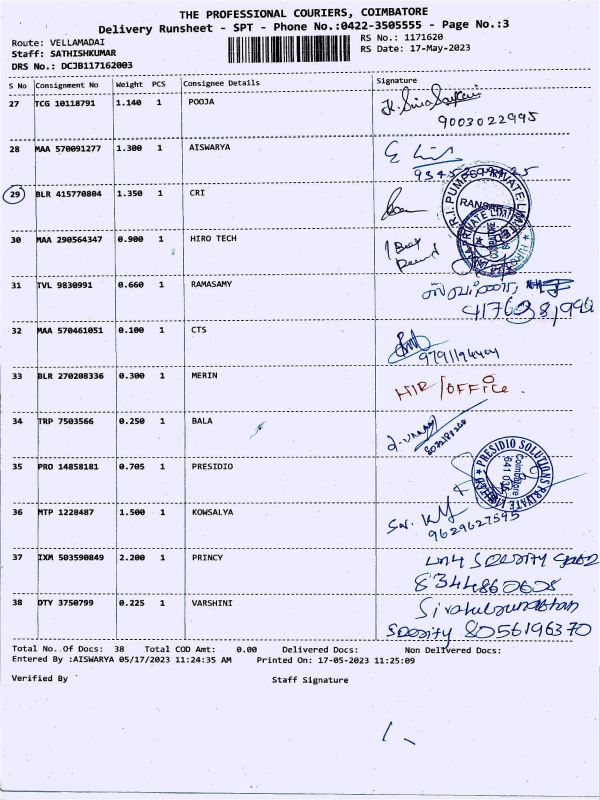 THE PROFESSIONAL COURIERS, COIMBATORE
Delivery Runsheet - SPT - Phone No.:0422-3505555 - Page No.:3
Route: VELLAMADAI RS No.: 1171620
Staff: SATHISHKUMAR RS Date: 17-May-2023
DRS No.: DCJB117162003
S No Consignment No Weight PCS Consignee Details Signature
27 TCG 10118791 1.140 1 POOJA
9003022995
28 MAA 570091277 1.300 1 AISWARYA
29 BLR 415770804 1.350 1 CRI
30 MAA 290564347 0.900 1 HIRO TECH
31 TVL 9830991 0.660 1 RAMASAMY
32 MAA 570461051 0.100 1 CTS
33 BLR 270208336 0.300 1 MERIN HIR/OFFICE.
34 TRP 7503566 0.250 1 BALA
35 PRO 14858181 0.705 1 PRESIDIO
PRESIDIO SOLUTIONS PRIVATE
Coimbatore
641 035
36 MTP 1228487 1.500 1 KOWSALYA
9629627595
37 IXM 503590849 2.200 1 PRINCY
8344860605
38 OTY 3750799 0.225 1 VARSHINI
8056196370
Total No. Of Docs: 38 Total COD Amt: 0.00 Delivered Docs: Non Delivered Docs:
Entered By :AISWARYA 05/17/2023 11:24:35 AM Printed On: 17-05-2023 11:25:09
Verified By Staff Signature